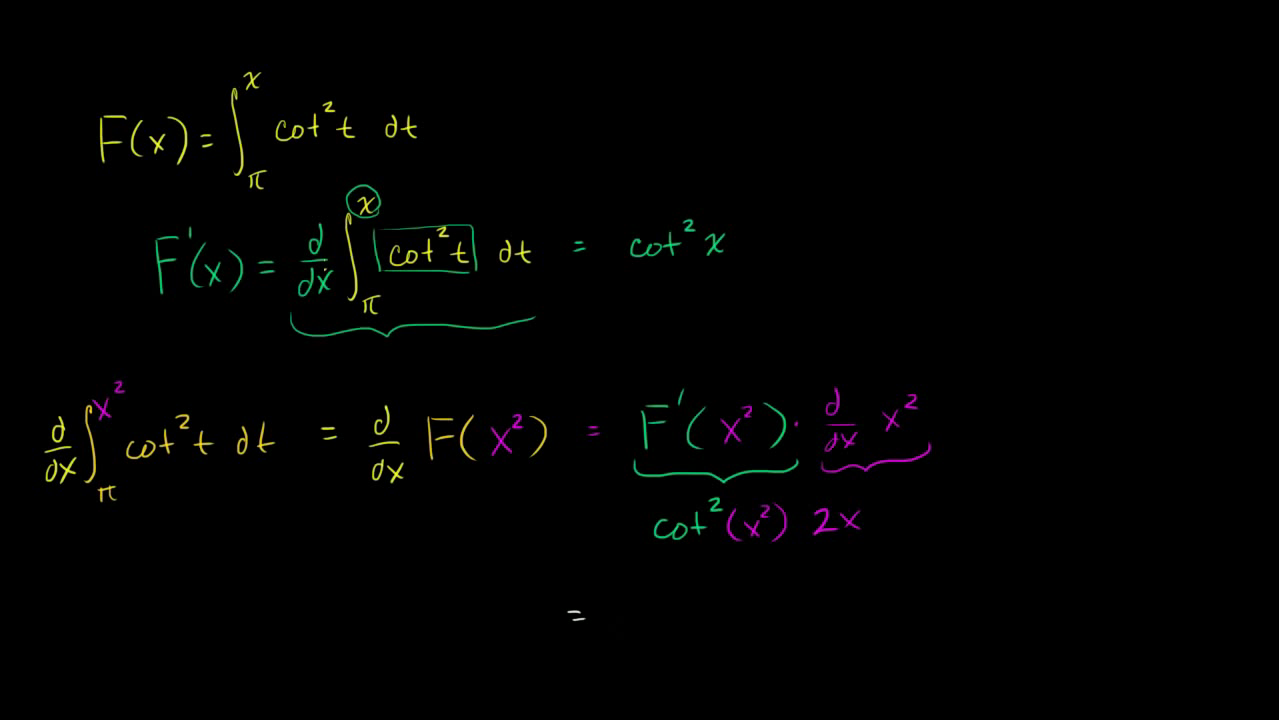 F(x) = ∫_π^x cot²t dt
F'(x) = d/dx ∫_π^x cot²t dt = cot²x
d/dx ∫_π^x² cot²t dt = d/dx F(x²) = F'(x²)·d/dx x²
cot²(x²) 2x
=